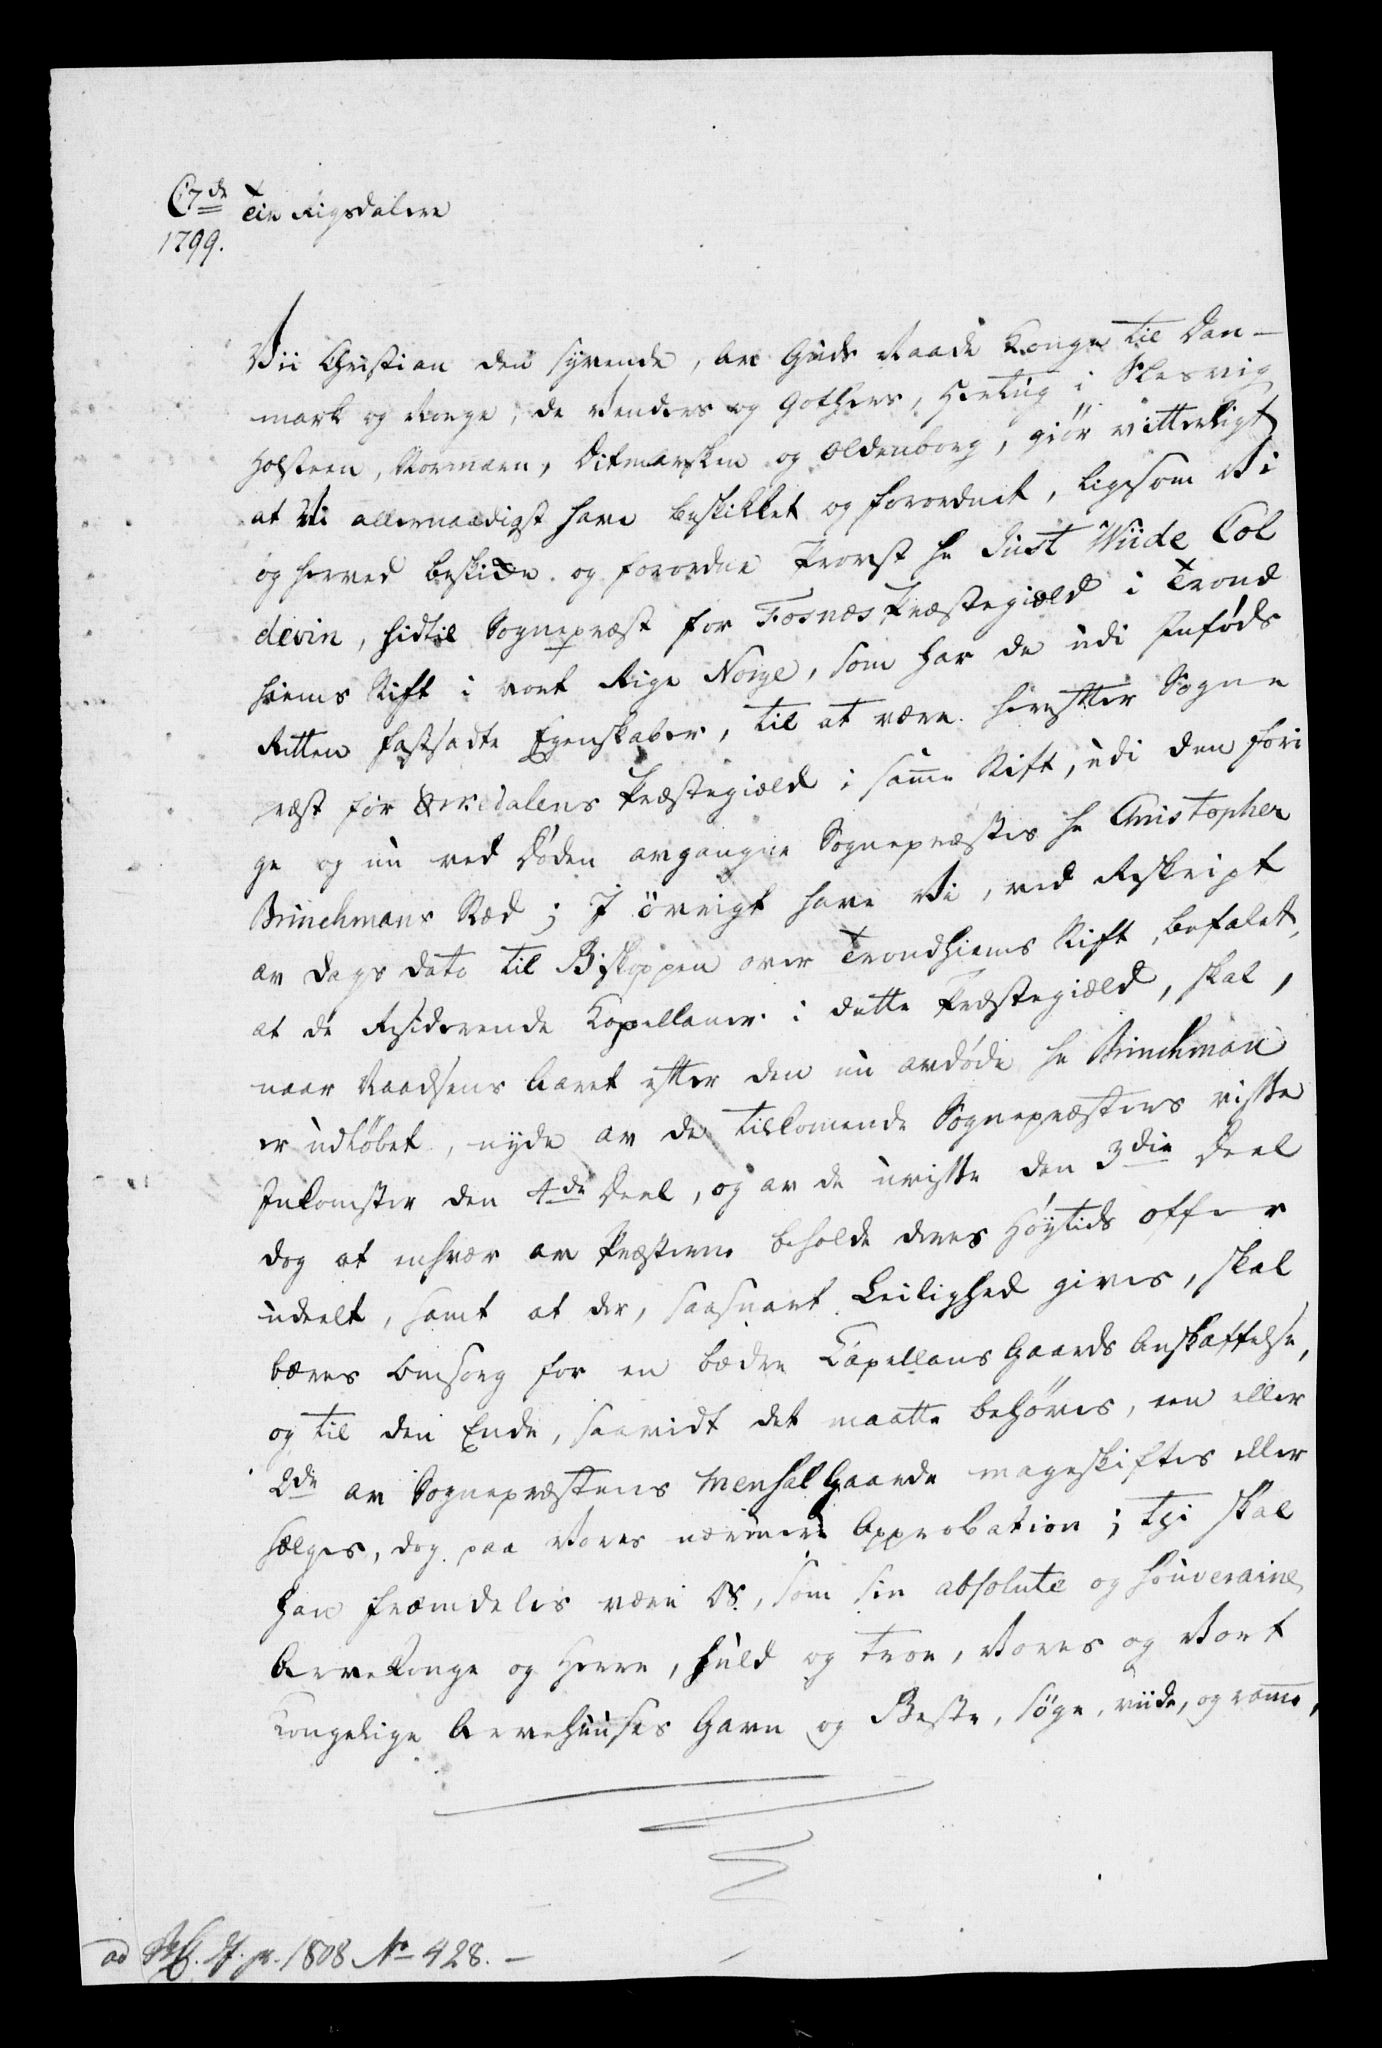 C7de Tie Rigsdalere
1799.
Vii Christian den syvende, av Guds Naade Konge til Dan-
mark og Norge, de Venders og Gothers, Hertug i Slesvig
Holsteen, Stormarn, Ditmarsken og Oldenborg, giør vitterligt
at Vi allernaadigst have beskikket og forordnet, ligesom Vi
og herved beskikke og forordne Provst hr Just Wiide Col
devin, hidtil Sognepræst for Fosnæs Præstegiæld i Trond
hiems Stift i vort Rige Norge, som har de udi Indføds
Retten fastsadte Egenskaber, til at være herefter Sogne
ræst for Ørkedalens Præstegiæld i samme Stift, udi den fori
ge og nu ved Døden avgangne Sognepræstes hr Christopher
Brinchmans Stæd; I øvrigt have Vi, ved Reskript
av Dags Dato til Biskoppen over Trondhiems Stift, befalet,
at de Residerende Kapellaner i dette Præstegiæld, skal,
naar Naadsens Aaret efter den nu avdøde hr Brinchman
er udløbet, nyde av de tilkomende Sognepræstens visse
Inkomster den 4de Deel, og av de uvisse den 3die Deel
dog at enhver av Præsterne beholde deres Høytids offer
udeelt, samt at der, saasnart Leilighed gives, skal
bæres Omsorg for en bedre Capellans Gaards Anskaffelse,
og til den Ende, saavidt det maatte behøves, een eller
2de av Sognepræstens Mensal Gaarde mageskiftes eller
sælges, dog paa Vores nærmere Approbation; thi skal
han fræmdeles være Os, som sin absolute og souveraine
Arvekonge og Herre, huld og troe, Vores og Vort
Kongelige Arvehuuses Gavn og Beste, søge, viide, og ramme,
ad 1808 No 428.-